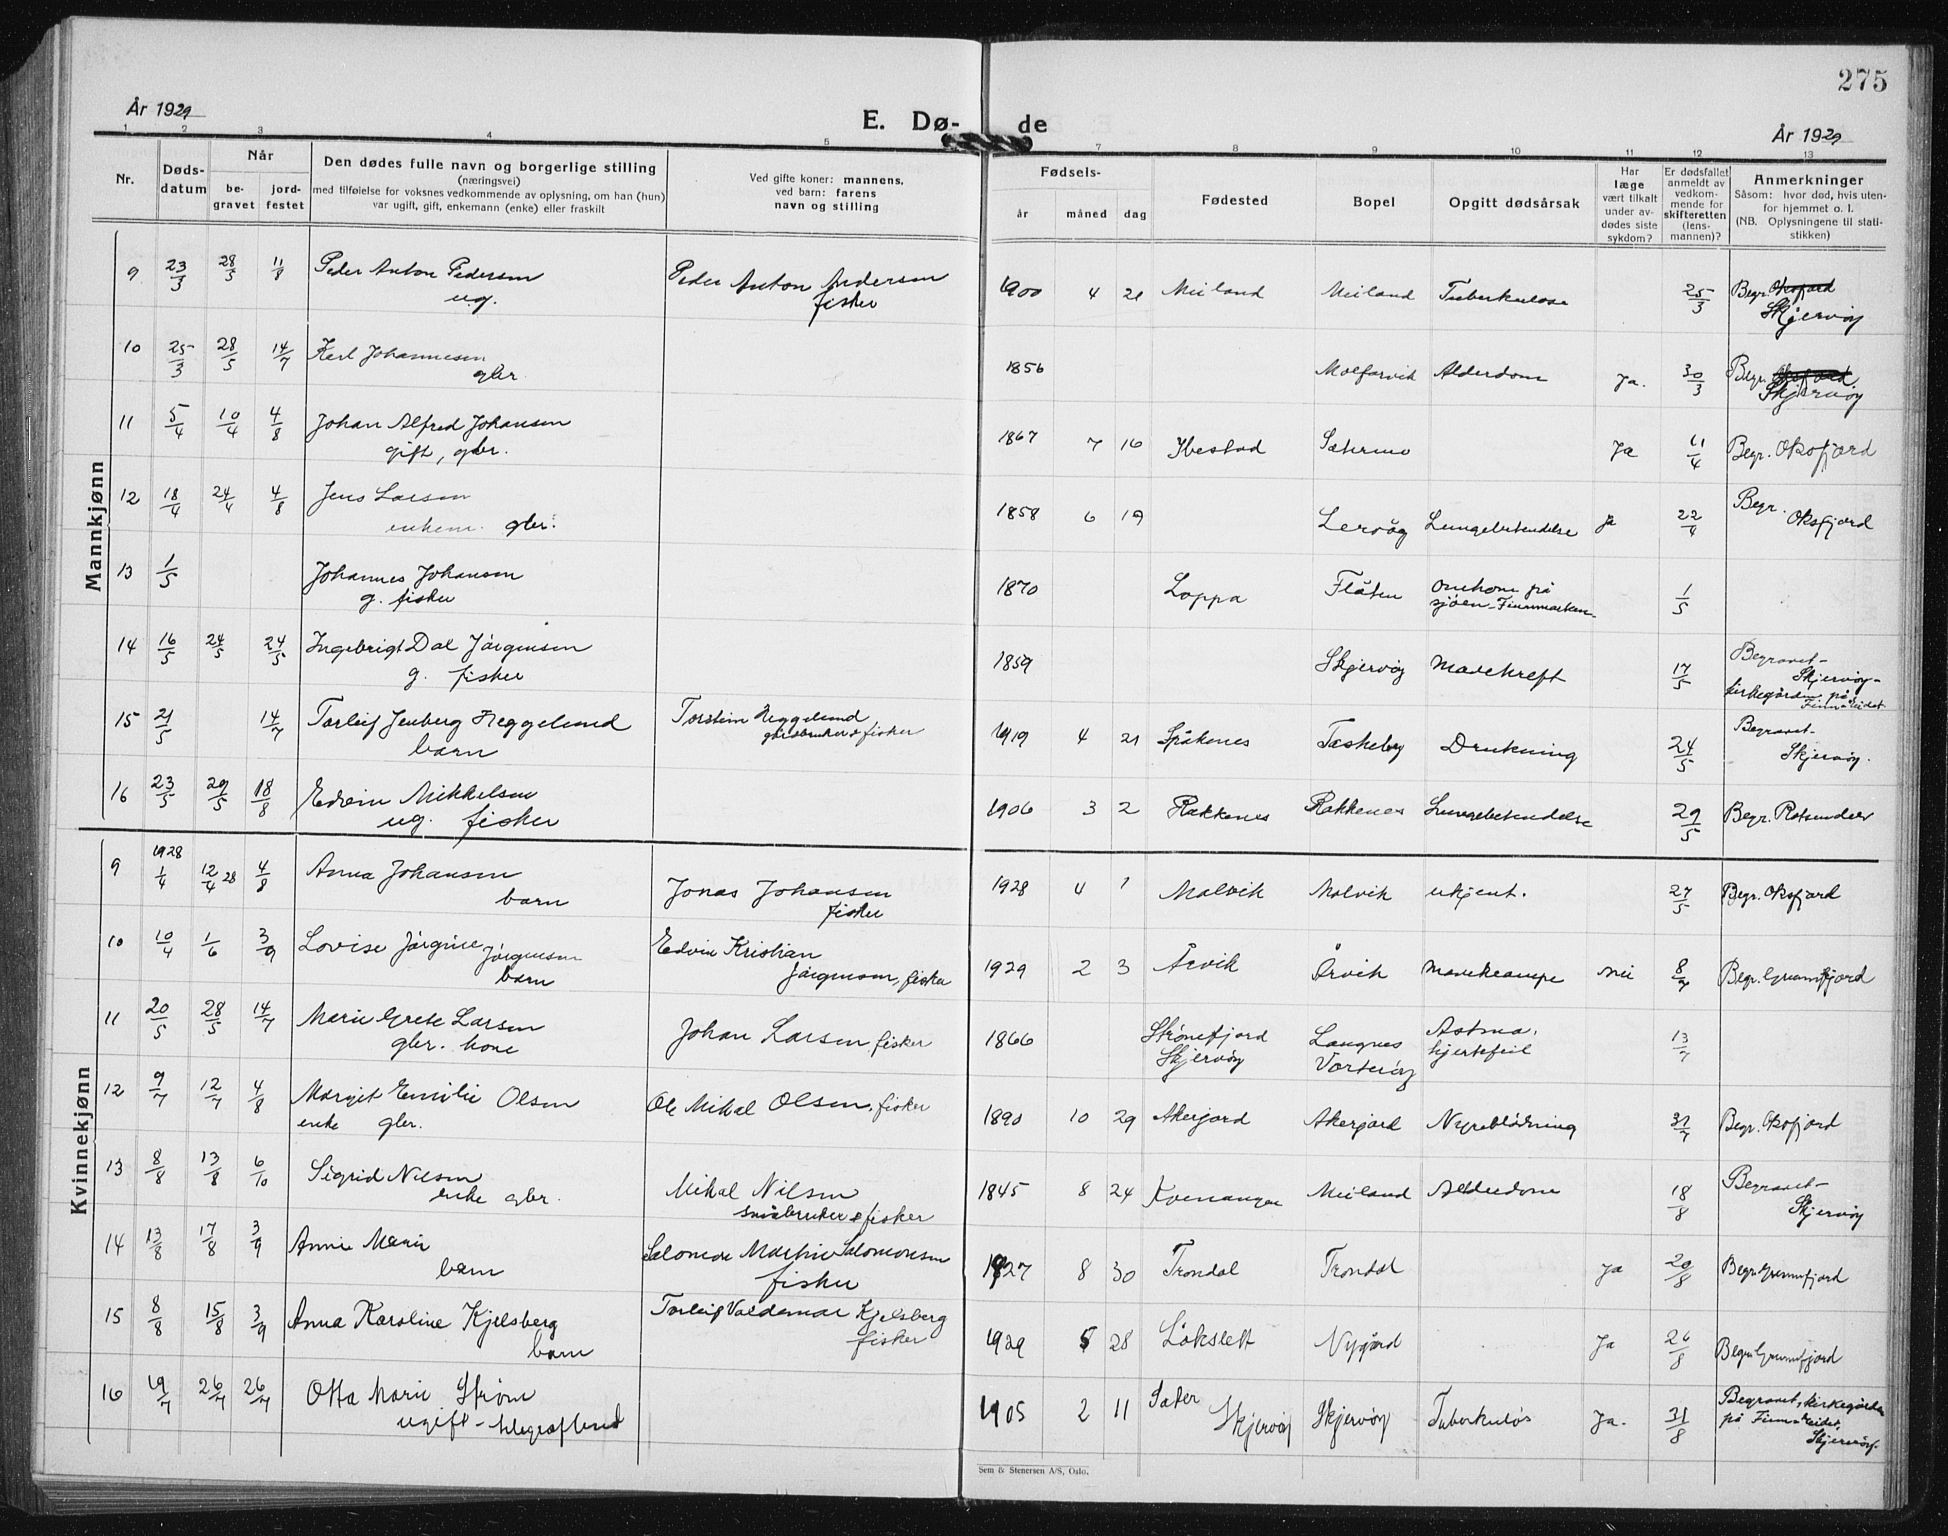 275
År 1929
E. Dø-
de
År 1929
1 2 3 4 5 7 8 9 10 11 12 13
Nr.
Døds-
datum
Når
be-
gravet
jord-
festet
Den dødes fulle navn og borgerlige stilling
(næringsvei)
med tilføielse for voksnes vedkommende av oplysning, om han (hun)
var ugift, gift, enkemann (enke) eller fraskilt
Ved gifte koner: mannens,
ved barn: farens
navn og stilling
Fødsels-
år måned dag
Fødested
Bopel
Opgitt dødsårsak
Har
læge
vært tilkalt
under av-
dødes siste
sykdom?
Er dødsfallet
anmeldt av
vedkom-
mende for
skifteretten
(lens-
mannen)?
Anmerkninger
Såsom: hvor død, hvis uten-
for hjemmet o. l.
(NB. Oplysningene til stati-
stikken)
Mannkjønn
9 23/3 28/5 11/8 Peder Anton Pedersen Peder Anton Andersen 1900 4 21 Meiland Meiland Tuberkulose 25/3 Begr. Oksfjord
ug. fisker Skjervøy
10 25/3 28/5 14/7 Karl Johannesen 1856 Alderdom Ja. 30/3 Begr. Oksfjord
gbr. Skjervøy
11 5/4 10/4 4/8 Johan Alfred Johansen 1867 7 16 Ibestad Ja 11/4 Begr. Oksfjord
gift, gbr.
12 18/4 24/4 4/8 Jens Larsen 1858 6 19 Lervåg Lungebetendelse ja 22/4 Begr.
enkem. gbr. Oksfjord
13 1/5 Johannes Johansen 1870 Loppa Flåten omkom på 1/5
g. fisker sjöen - Finnmarken
14 16/5 24/5 24/5 Ingebrigt Dal Jörgensen 1859 Skjervöy Mavekreft 17/5 Begravet
g. fisker Skjervöy-
kirkegården på
Finneidet
15 21/5 14/7 Torleif Jenberg Heggelund Torstein Heggelund 1919 4 21 Spåkenes Taskeby Drukning 24/5 Begravet
barn gårdbruker & fisker Skjervöy.
16 23/5 29/5 18/8 Edvin Mikkelsen 1906 3 2 Rakkenes Rakkenes Lungebetendelse 29/5 Begr. Rotsundelv
ug. fisker
Kvinnekjønn
9 1928 1/4 12/4 28 4/8 Anna Johansen Jonas Johansen 1928 4 1 Malvik Malvik ukjent. 27/5 Begr. Oksfjord
barn fisker
10 10/4 1/6 3/9 Lovise Jörgine Jörgensen Edvin Kristian 1929 2 3 Årvik Årvik Mavekrampe nei Begr.
barn Jörgensen, fisker
11 20/5 28/5 14/7 Marie Grete Larsen Johan Larsen, fisker 1866 Strömfjord Langnes Astma, 13/7
gbr. kone Skjervöy Vorteröy hjertefeil
12 9/7 12/7 4/8 Margit Emilie Olsen Ole Mikal Olsen, fisker 1890 10 29 Akerjord Akerjord Nyreblödning 31/7 Begr. Oksfjord
enke gbr.
13 8/8 13/8 6/10 Sigrid Nilsen Mikal Nilsen 1845 8 24 Kvenangen Meiland Alderdom 18/8 Begravet
enke gbr. småbruker & fisker Skjervöy
14 13/8 17/8 3/9 Anne Marie Salomon Martin Salomonsen 1927 8 30 Trondal Trondal Ja 20/8 Begr.
barn fisker
15 8/8 15/8 3/9 Anna Karoline Kjelsberg Torleif Valdemar Kjelsberg 1929 5 28 Lökslett Nygård Ja 26/8 Begr.
barn fisker
16 19/7 26/7 26/7 Otta Marie Ström 1905 2 11 Sæter Skjervöy Skjervöy Tuberkulös Ja. 31/8 Begravet, kirkegården
ugift - på Finneidet,
Skjervöy.
Sem & Stenersen A/S, Oslo.